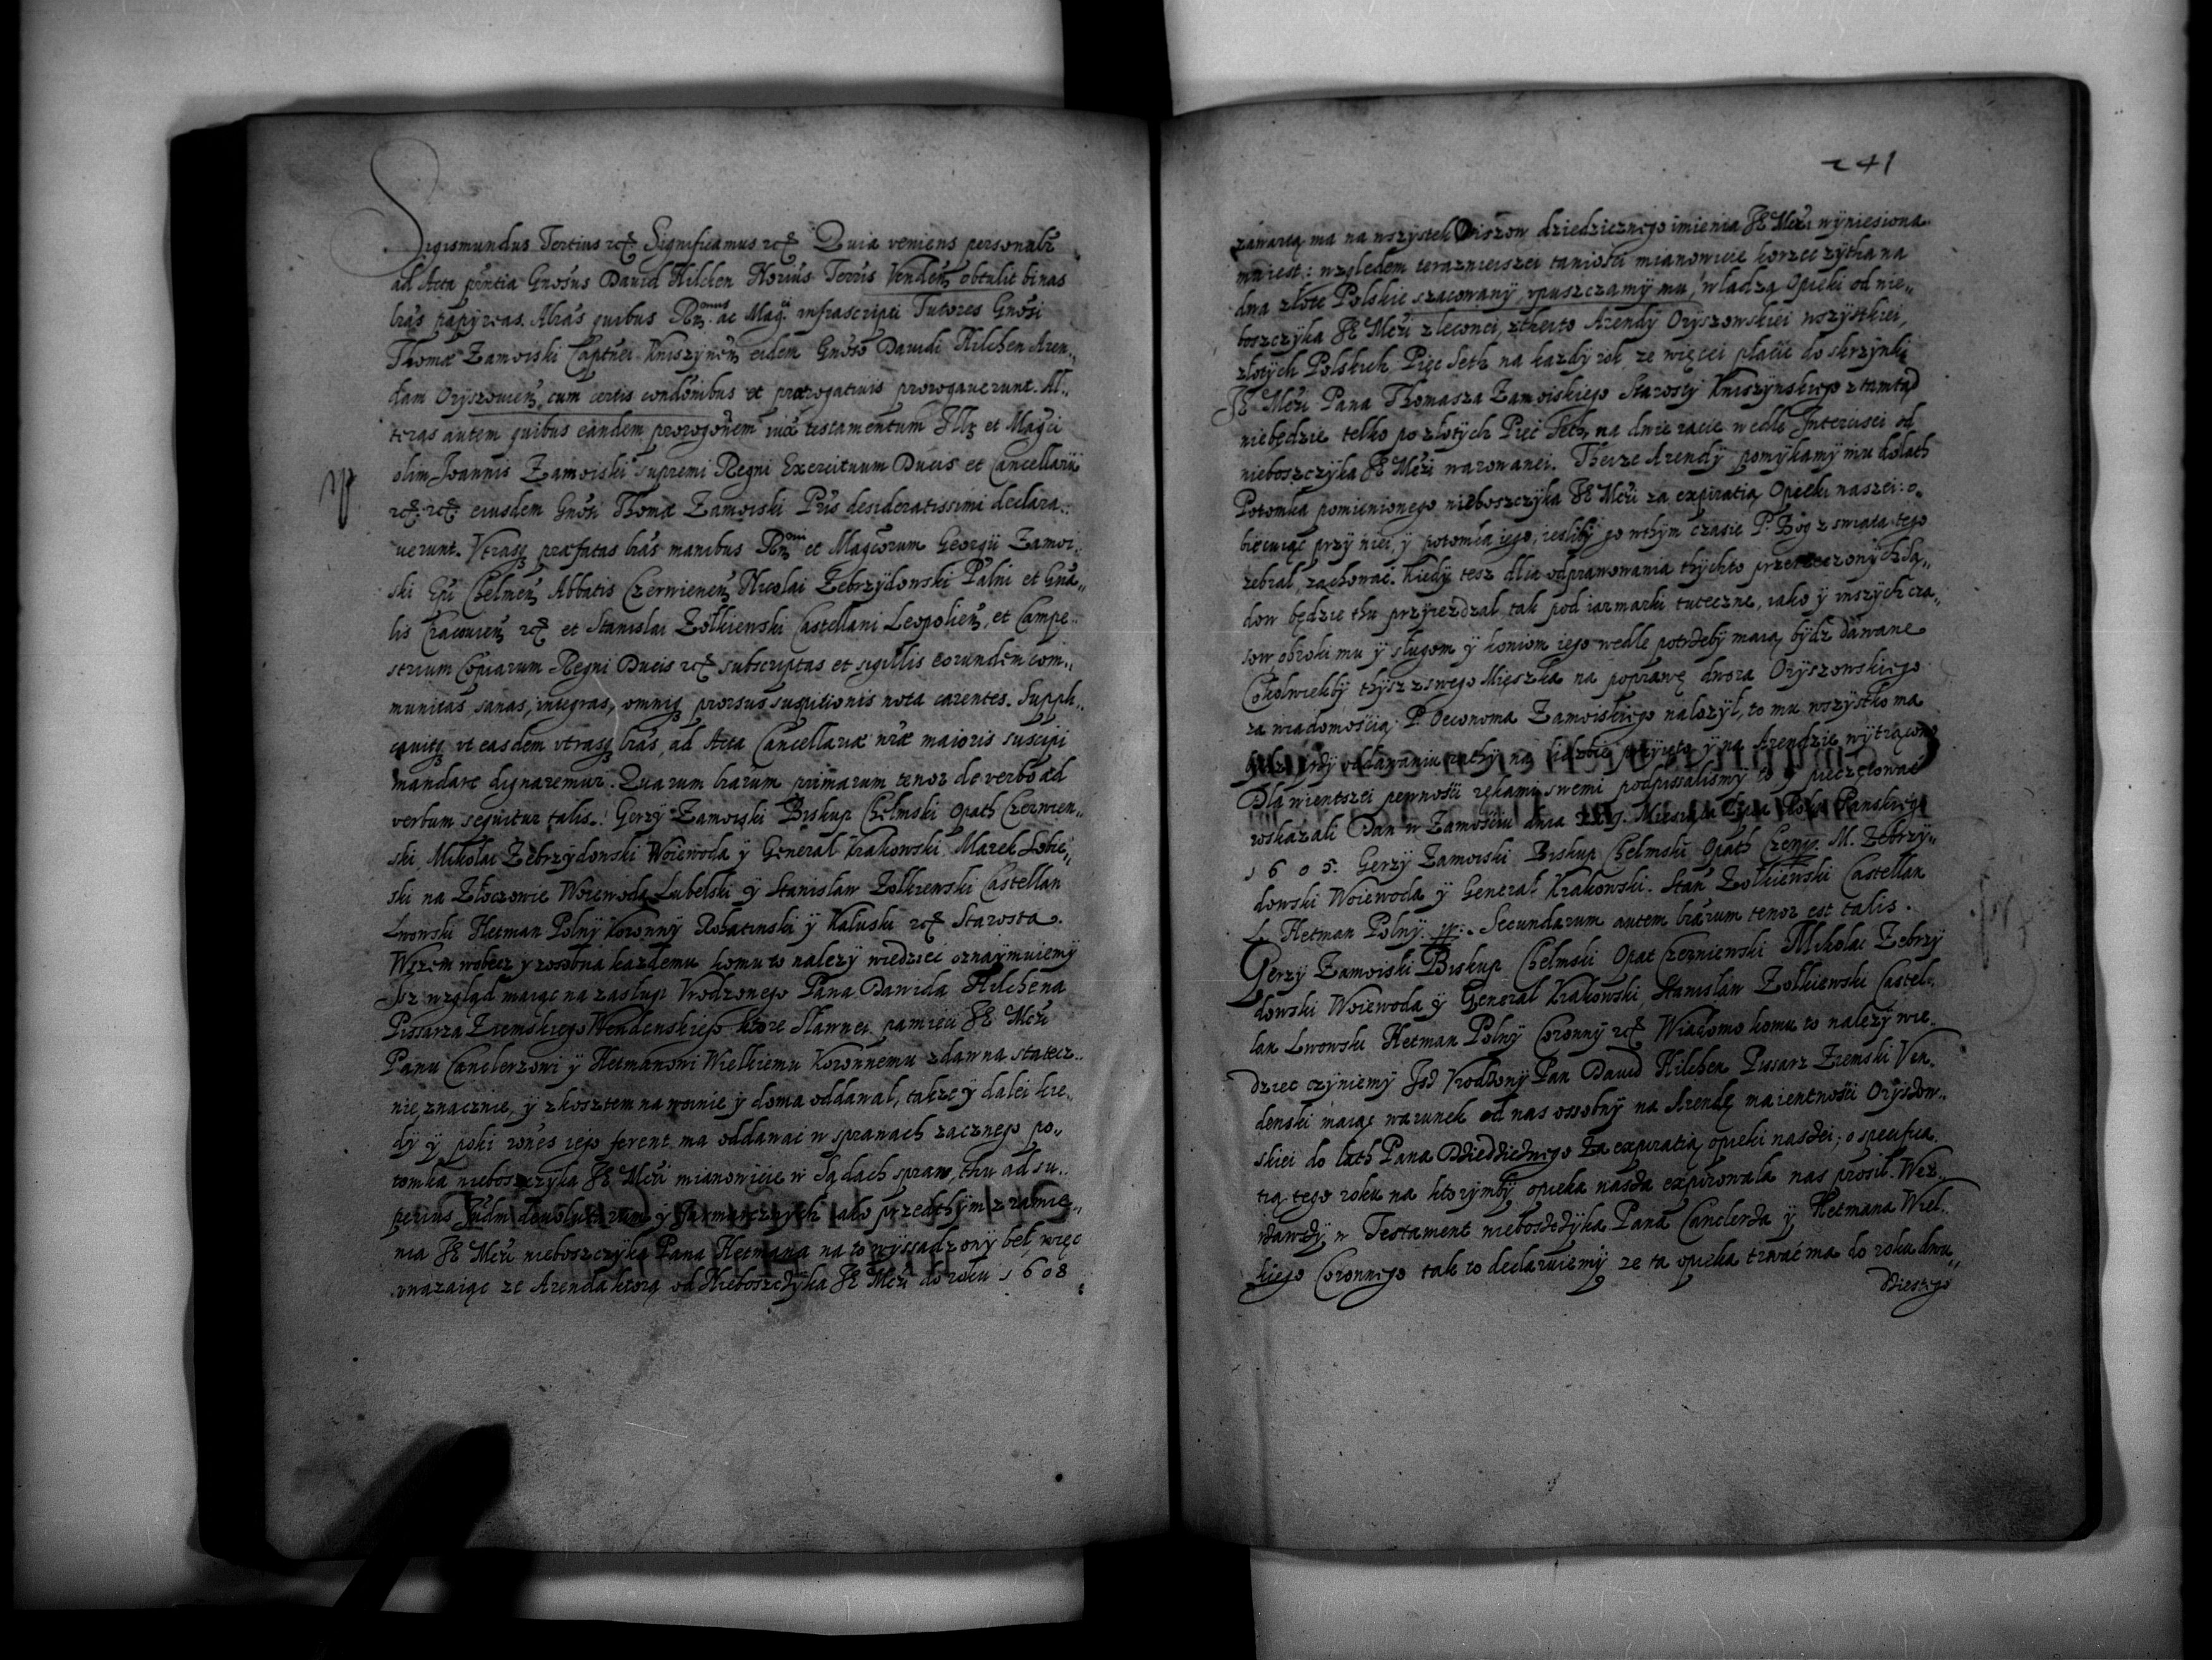 Sigismundus Tertius etc. Significamus etc. Quia veniens personalr
ad Acta pñtia Gnõsus David Hilchen Norius Terrs Venden obtulit binas
lrãs papyreas. Alrãs quibus Rm̃ ac Magci infrascripti Tutores Gnõsi
Thomæ Zamoiski Captnei Knyszynen eidem Gnõso Davidi Hilchen Aren„
dam Oryszovien, cum certis condõnibus et prærogativis prorogaverunt. Al„
teras autem quibus eandem prorogõnem iux̃ testamentum Illm et Magci
olim Joannis Zamoiski supremi Regni Exercituum Ducis et Cancellarii
etc. etc. eiusdem Gnõsi Thomæ Zamoiski Pris desideratissimi declara„
verunt. Vtrasq præfatas lrãs manibus Rmi et Magcorum Georgii Zamoi„
ski Epi Chelmen Abbatis Czerwienen Nicolai Zebrzydowski Palni et Gna„
lis Cracovien etc. et Stanislai Zolkiewski Castellani Leopolien, et Campe„
strium Copiarum Regni Ducis etc. subscriptas et sigillis eorundem com„
munitas sanas, integras, omniq prorsus suspitionis nota carentes. Suppli„
cavitq vt easdem vtrasq lrãs, ad Acta Cancellariæ nræ maioris suscipi
mandare dignaremur. Quarum lrarum primarum tenor de verbo ad
verbum sequitur talis. Gerzy Zamoiski Biskup Chelmski Opath Czerwien„
ski, Mikolai Zebrzydowski Woiewoda y General Krakowski Marek Sobie„
ski na Złoczowie Woiewoda Lubelski y Stanislaw Zolkiewski Castellan
Lwowski Hetman Polny Koronny Rohatinski y Kaluski etc. Starosta.
Wszem wobecz y zosobna kazdemu komu to nalezy wiedziec oznaymuiemy
Isz wzgląd maiąc na zaslugi Vrodzonego Pana Dawida Hilchena
Pissarza Ziemskiego Wendenskiego ktore Sławnei pamieci JE Mči
Panu Canclerzowi y Hetmanowi Wielkiemu Koronnemu zdawna statecz„
nię, znacznie, y zkosztem na woinie y doma oddawal, takze y dalei kie„
dy y poki vires iego ferent ma oddawac w sprawach zacznego po„
tomka nieboszczyka JE Mči mianowicie w Sądach spraw, thu ad su„
perius Iudm devolutarum y Jarmarcznych iako przedthym z ramie„
nia JE Mči nieboszczyka Pana Hetmana na to wyssadzony bel więc
vwazaiąc ze Arenda ktorą od Nieboszczyka JE Mči do roku 1608
241
zawartą ma na wszystek Oriszow dziedzicznego imienia JE Mči wyniesiona
mu iest: względem teraznieiszei taniosci mianowicie korzec zytha na
dwa złote Polskie szacowany, spuszczamy mu, władzą Opieki od nie„
boszczyka JE Mči zleconei, ztheito Arendy Oryszowskiei wszystkiei,
zlotych Polskich Pięc Seth na kazdy rok, ze więcei placic do skrzynki
JE Mči Pana Thomasza Zamoiskiego Starosty Kniszynskiego ztamtąd
niebędzie telko po zlotych Pięc Seth, na dwie racie wedle Intercisei od
nieboszczyka JE Mči warowanei. Theize Arendy pomykamy mu do lath
Potomka pomienionego nieboszczyka JE Mči za expiratią Opieki naszei: o„
biecuiąc przy niei, y potomka iego, iesliby go wthym czasie P. Bog z swiata tego
zebral, zachowac. Kiedy tesz dlia odprawowania thychto przerzeczonych Są„
dow będzie thu przyiezdzal, tak pod iarmarki tuteczne, iako y inszych cza„
sow, obroki mu y slugom y koniom iego wedle potrzeby maią bydz dawane
Cokolwiekby thysz zswego Mieszka na poprawę dwora Oryszowskiego
za wiadomoscią P. Oeconoma Zamoiskiego nalozyl, to mu wszystko ma
bydz przy oddawaniu rathy na liczbie przyięto y na Arendzie wytrącono
Dla wientszei pewnosci rękami swemi podpissalismy to y pieczętowac
roskazali Dan w Zamosciu dnia Miesiąca Roku Panskiego
1605. Gerzy Zamoiski Biskup Chelmski Opath Czerw. M. Zebrzy„
dowski Woiewoda y General Krakowski. Stan Zolkiewski Castellan
L. Hetman Polny. Secundarum autem lrarum tenor est talis.
Gerzy Zamoiski Biskup Chelmski Opat Czerniewski Mikolai Zebrzy
dowski Woiewoda y General Krakowski, Stanislaw Zolkiewski Castel„
lan Lwowski Hetman Polny Coronny etc. Wiadomo komu to nalezy wie„
dziec czyniemy Isz Vrodzony Pan David Hilchen Pissarz Ziemski Ven„
denski maiąc warunek od nas ossobny na Arendę maientnosci Oryszow„
skiei do lath Pana Dziedzicznego za expiratią opieki naszei; o specifica„
tią tego roku na ktorymby opieka nasza expirowala nas prosil. Wez„
rzawszy w Testament nieboszczyka Pana Canclerza y Hetmana Wiel„
kiego Coronnego tak to declaruiemy ze ta opieka trwać ma do roku dwu„
dziestego